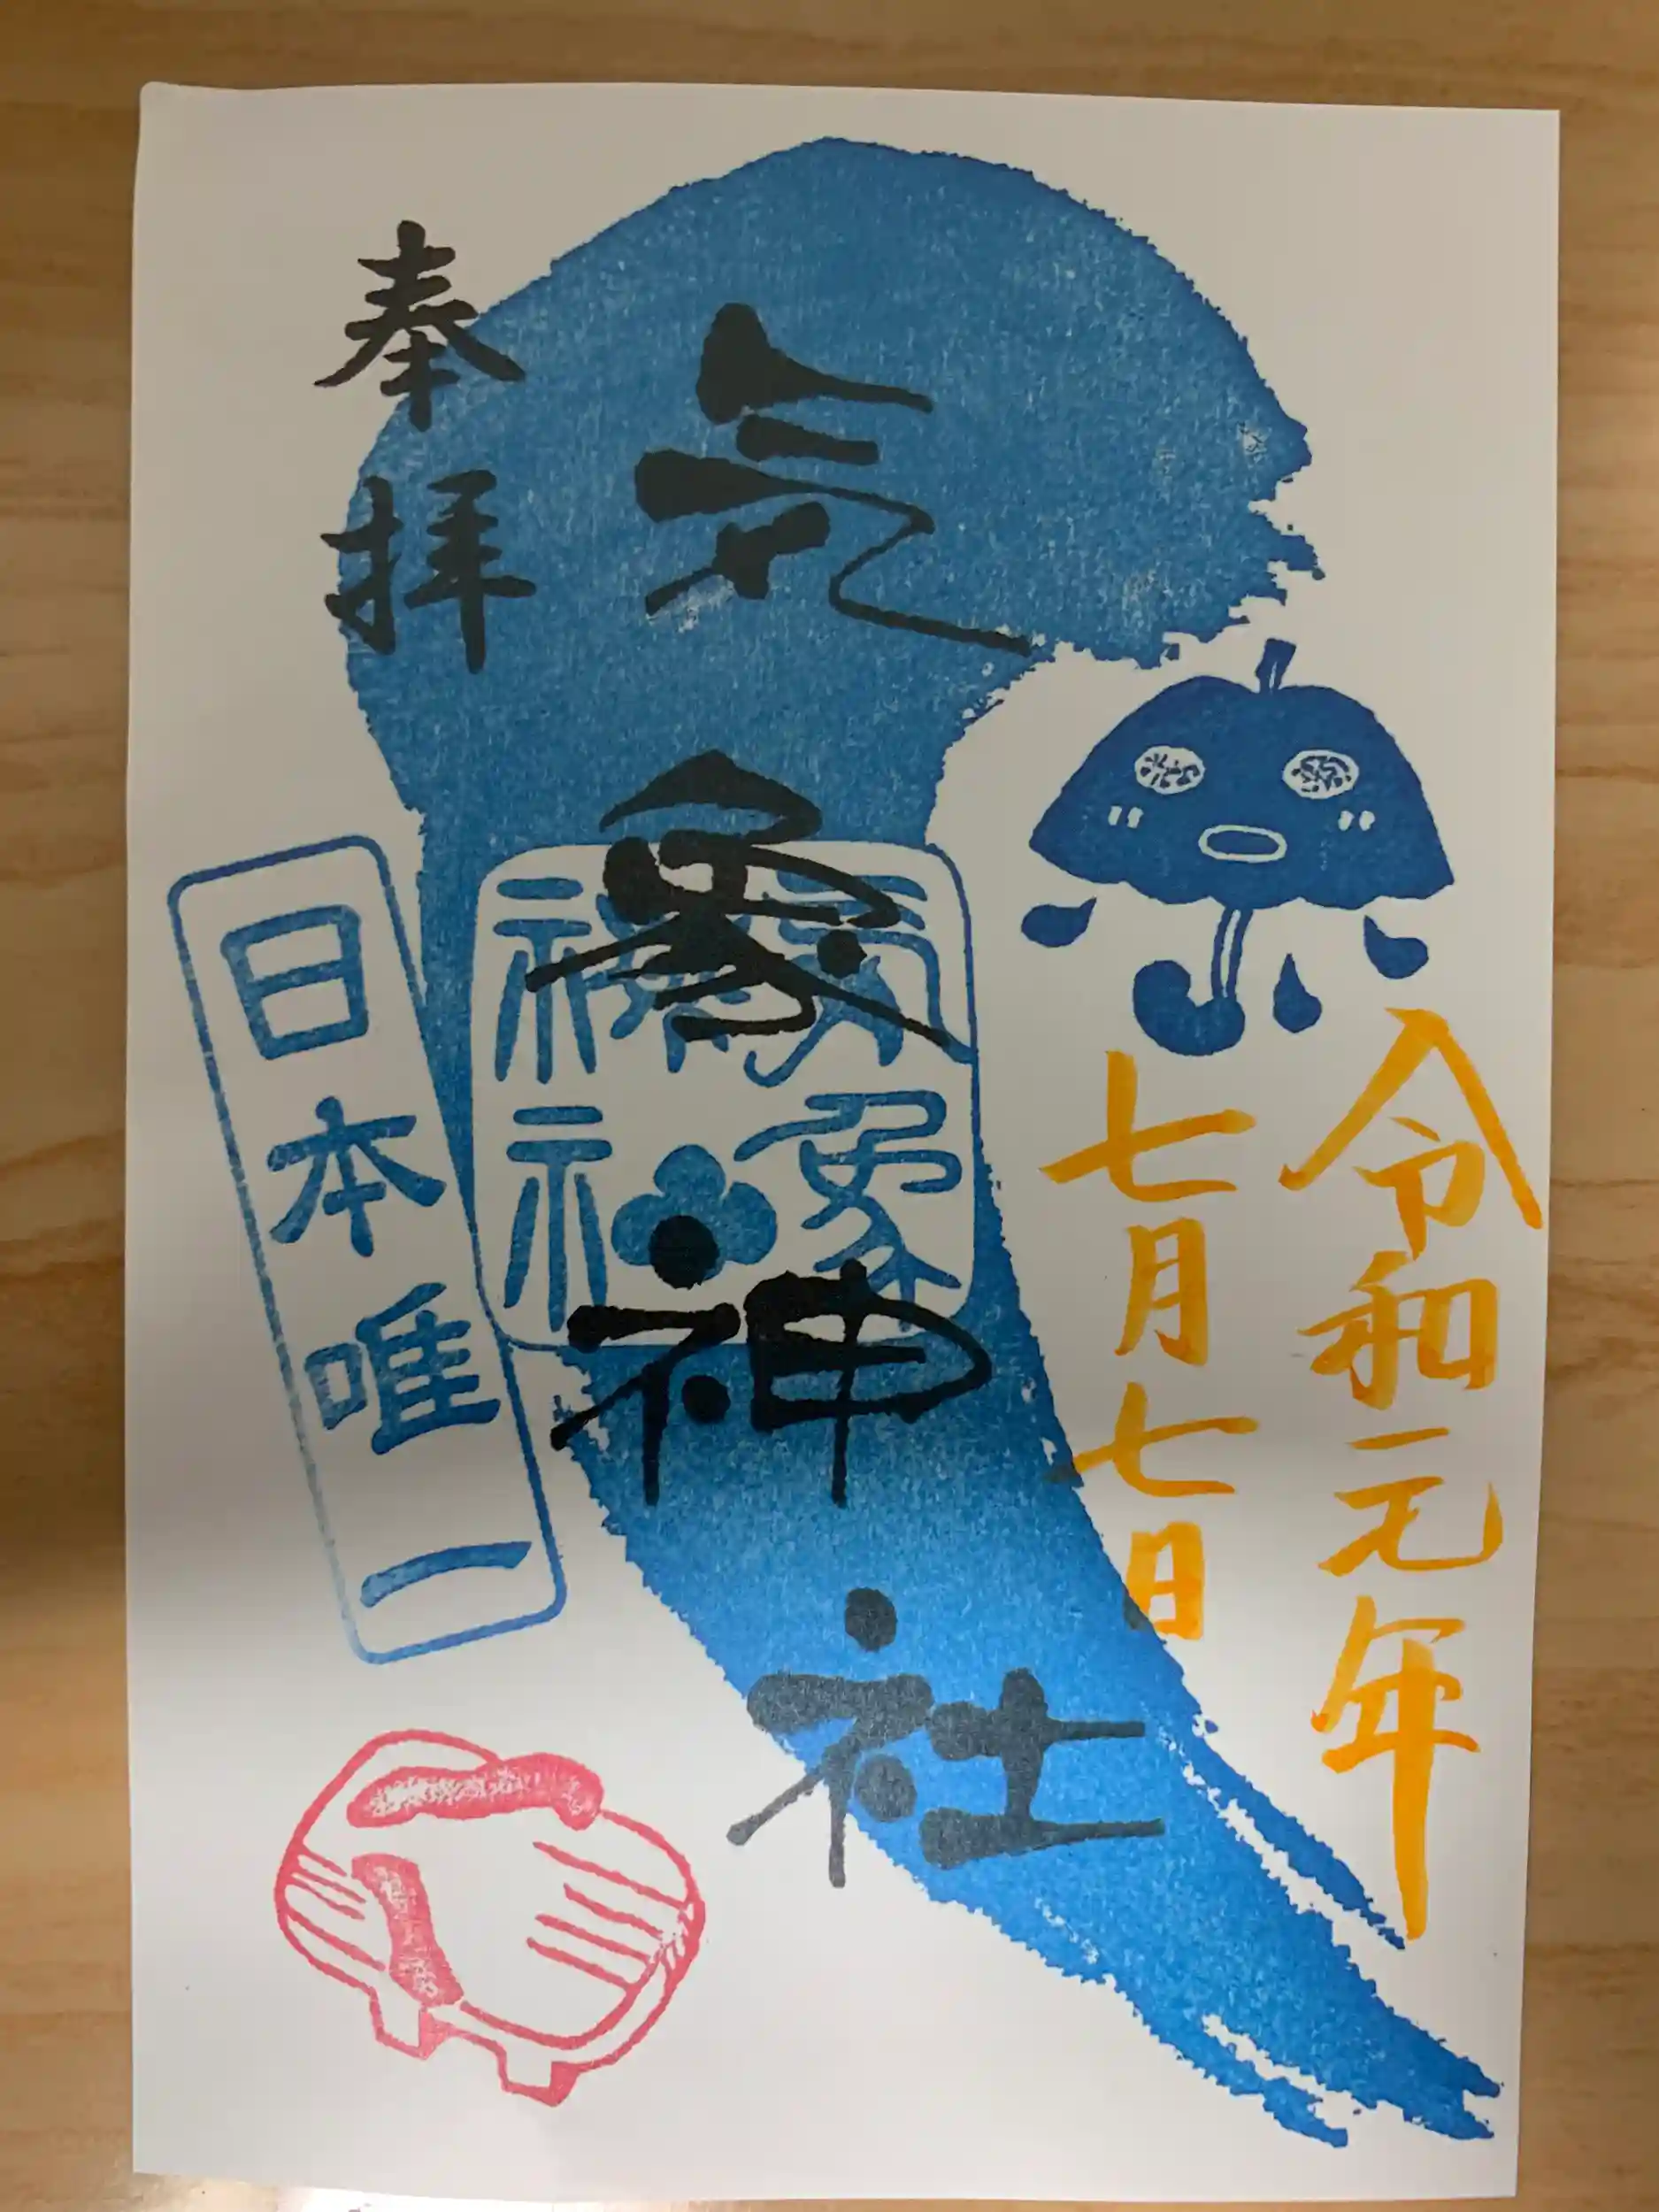 令和元年
七月七日
気象神社
氣象
神社
奉拝
日本唯一